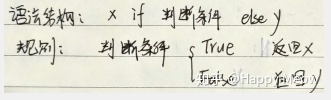 语法结构: x if 判断条件 else y
规则: 判断条件 { True 返回x
False 返回y
知乎 @Happymeow